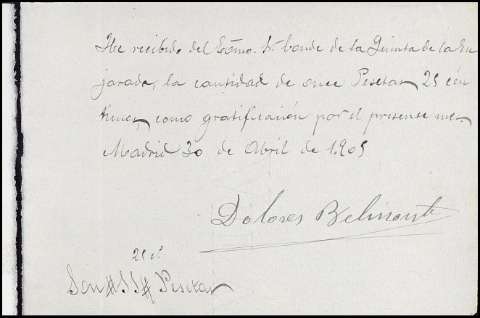 He recibido del Exmo. Sr. Conde de la Quinta de la En
jarada, la cantidad de once Pesetas 25 cén
timos, como gratificación por el presente mes.
Madrid 30 de Abril de 1905
Dolores Belmonte
25 ct
Son #11# Pesetas